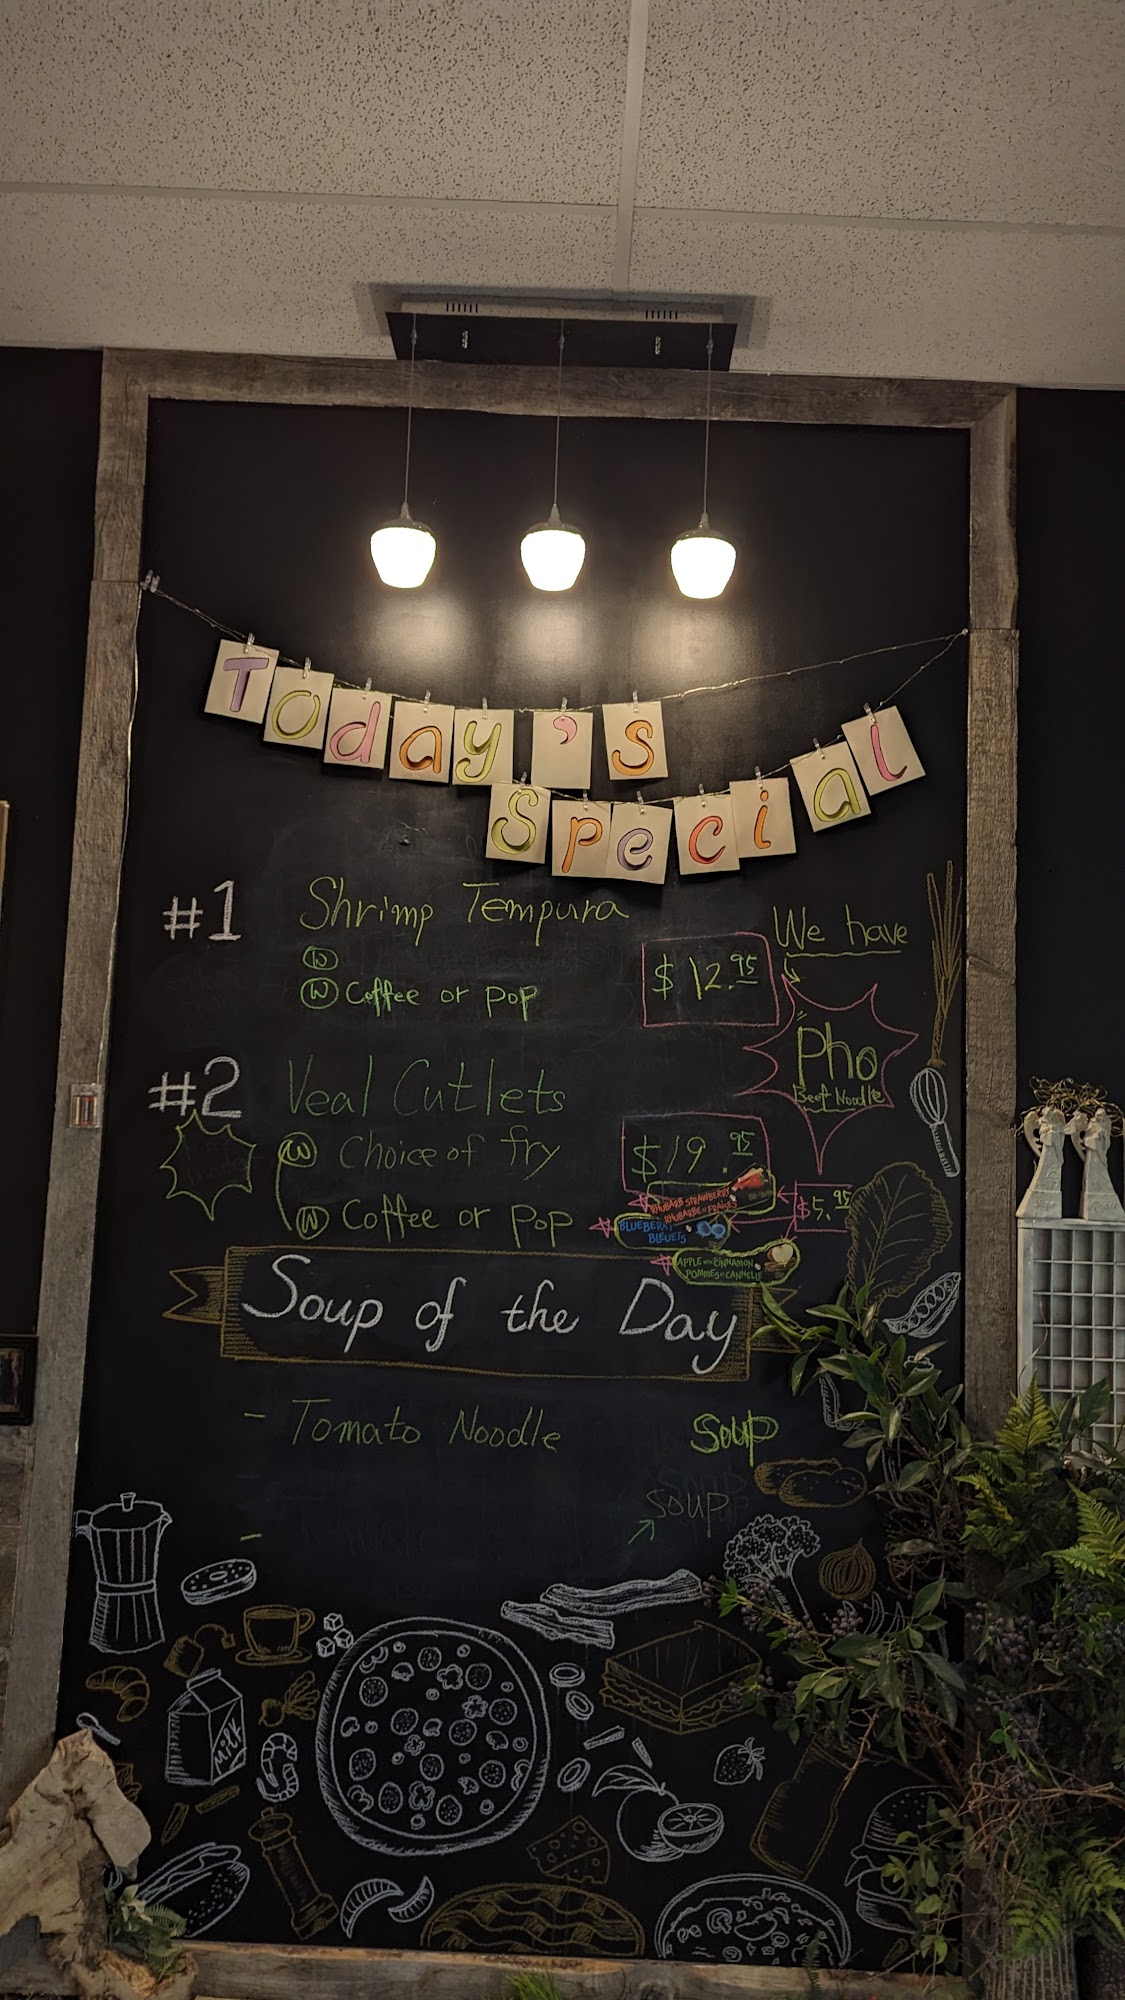 Today's
Special
#1 Shrimp Tempura
W
W Coffee or pop
$12.95
We have
Pho
Beef Noodle
#2 Veal Cutlets
W Choice of fry
W Coffee or pop
$19.95
RHUBARB STRAWBERRY
RHUBARBE et FRAISES
BLUEBERRY
BLEUETS
APPLE with CINNAMON
POMMES et CANNELLE
$5.95
Soup of the Day
- Tomato Noodle Soup
- Soup
milk